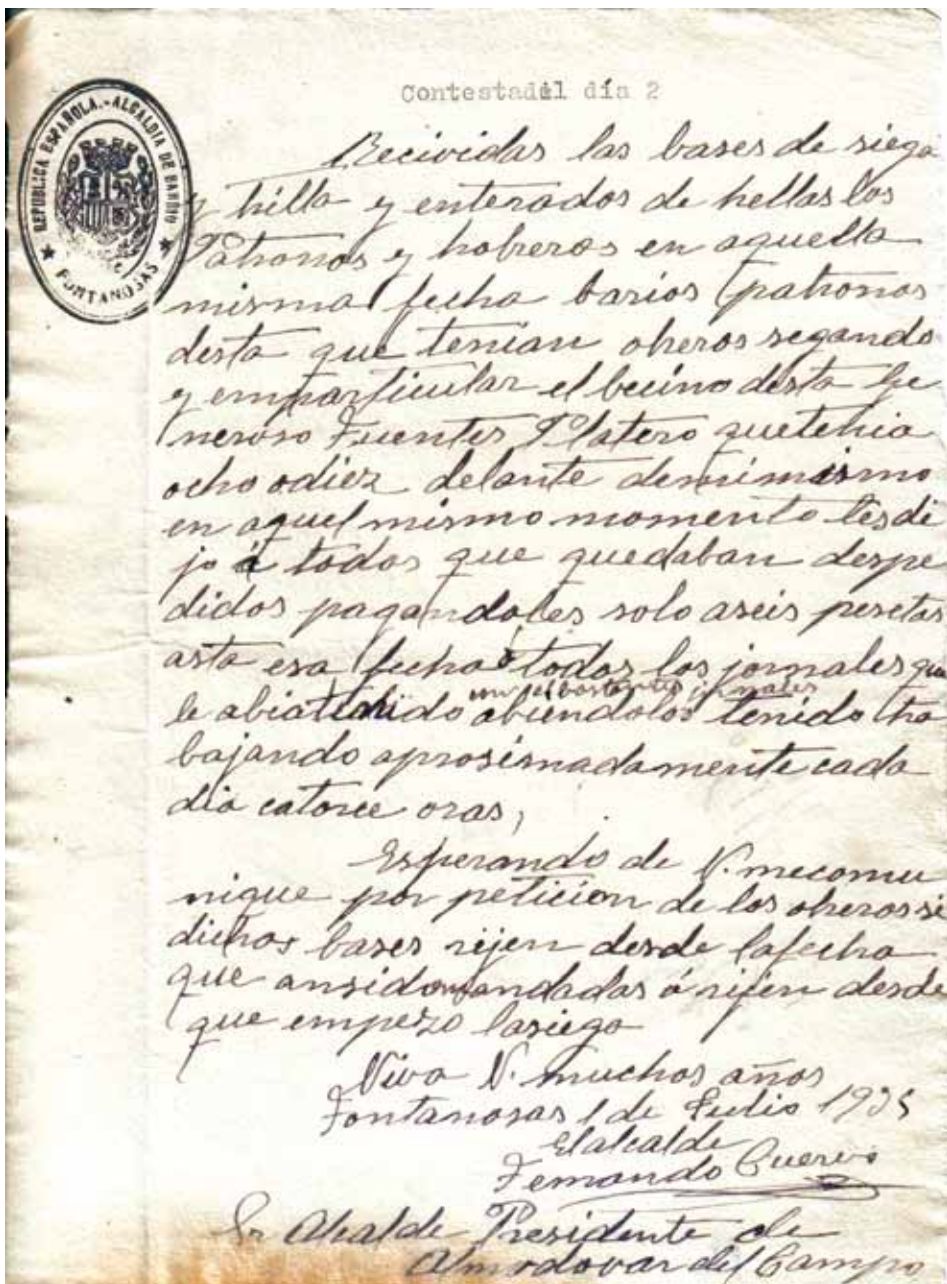 Contestadel día 2
REPUBLICA ESPAÑOLA.-ALCALDIA DE BARRIO
★ FONTANOSAS ★
Recividas las bases de siega
y trilla y enterados de hellas los
Patronos y hobreros en aquella
misma fecha barios patronos
desta que tenian oberos segando
y emparticular el becino desta Ge
neroso Fuentes Platero quetenia
ocho odiez delante demimismo
en aquel mismo momento lesdi
jo á todos que quedaban despe
didos pagandoles solo aseis pesetas
asta esa fecha todos los jornales que
le abiatenido abiendolos tenido tra
bastantes jornales
bajando aprosimadamente cada
dia catorce oras,
Esperando de V. mecomu
nique por peticion de los oberos si
dichas bases rijen desde lafecha
que ansidomandadas ó rijen desde
que empezo lasiega
Viva V. muchos años
Fontanosas 1 de Julio 193
Elalcalde
Fernando Cuervo
Sr Alcalde Presidente de
Almodovar del Campo